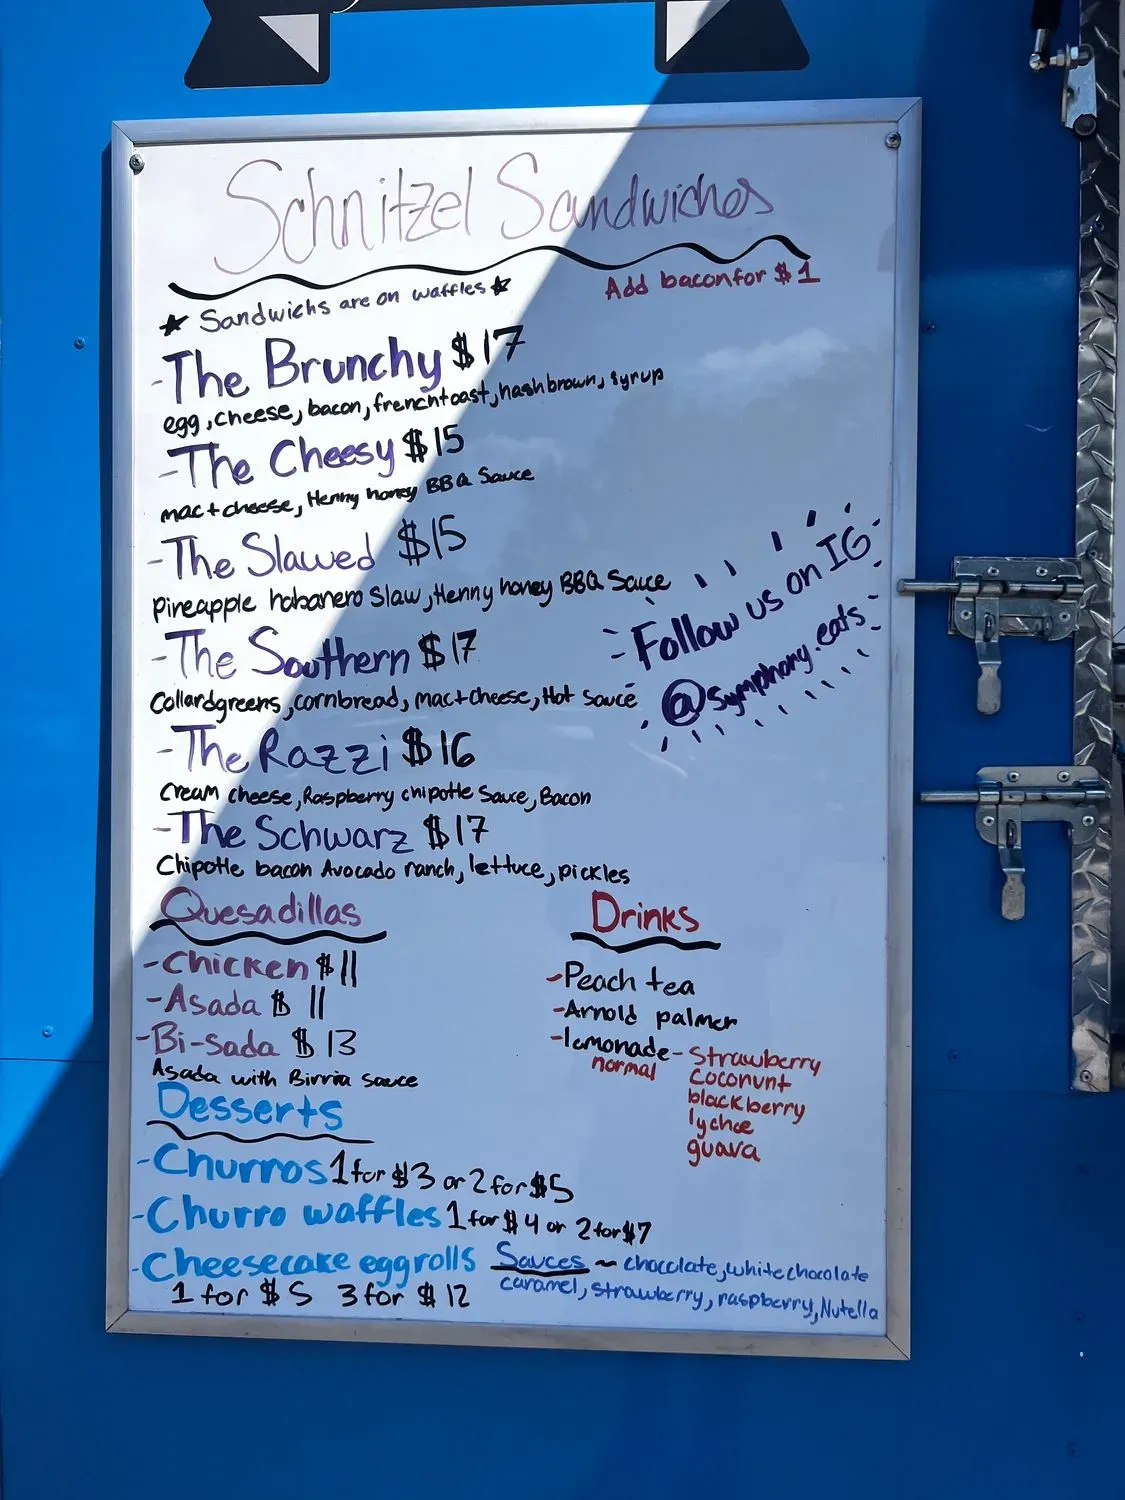 Schnitzel Sandwiches
Add bacon for $1
★ Sandwichs are on waffles ★
-The Brunchy $17
egg, cheese, bacon, frenchtoast, hashbrown, syrup
-The Cheesy $15
mac+cheese, Henny honey BBQ Sauce
-The Slawed $15
Pineapple habanero Slaw, Henny honey BBQ Sauce
-The Southern $17
Collardgreens, cornbread, mac+cheese, Hot Sauce
Follow us on IG
@symphony.eats
-The Razzi $16
Cream cheese, Raspberry chipotle Sauce, Bacon
-The Schwarz $17
Chipotle bacon Avocado ranch, lettuce, pickles
Quesadillas
-Chicken $11
-Asada $11
-Bi-sada $13
Asada with Birria sauce
Drinks
-Peach tea
-Arnold palmer
-lemonade - Strawberry
normal
Coconunt
blackberry
lychee
guava
Desserts
-Churros 1 for $3 or 2 for $5
-Churro waffles 1 for $4 or 2 for $7
-Cheesecake eggrolls
1 for $5 3 for $12
Sauces ~ chocolate, white chocolate
caramel, strawberry, raspberry, Nutella